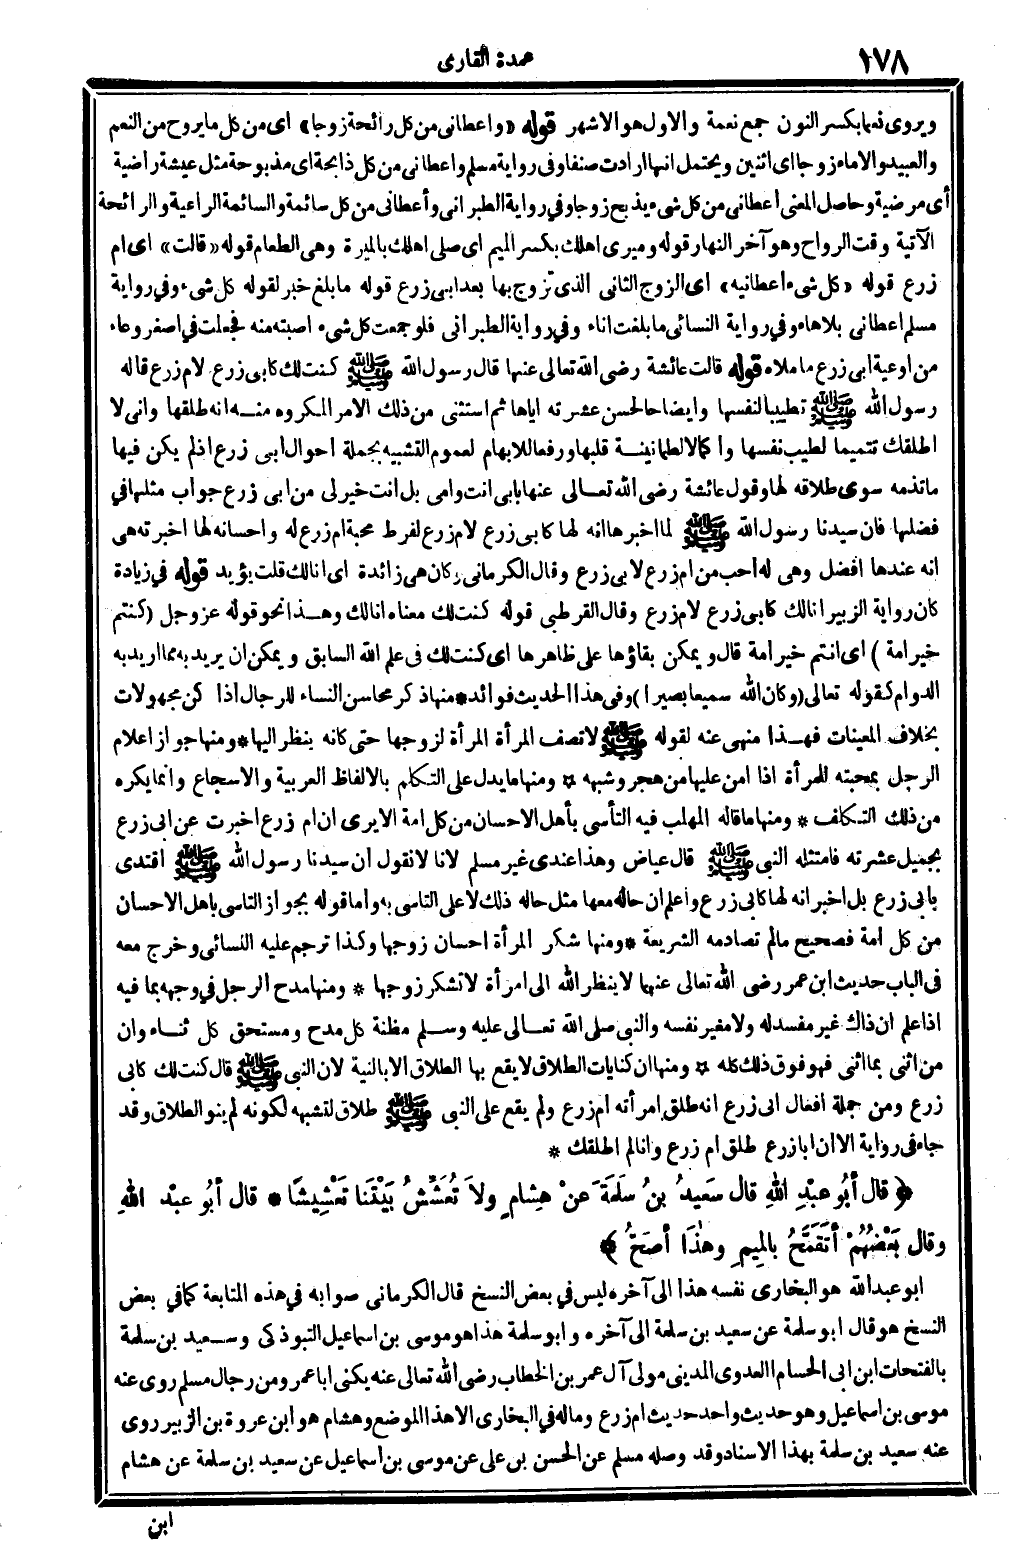 ١٧٨
عمدة القارى
ويروى نعما بكسر النون جمع نعمة والاول هو الاشهر قوله «واعطانى من كل رائحة زوجا» اى من كل ما يروح من النعم
والعبيد والاماء زوجا اى اثنين ويحتمل انها ارادت صنفا وفى رواية مسلم واعطانى من كل ذابحة اى مذبوحة مثل عيشة راضية
أى مرضية وحاصل المعنى أعطانى من كل شىء يذبح زوجا وفي رواية الطبرانى وأعطانى من كل سائمة والسائمة الراعية والرائحة
الآتية وقت الرواح وهو آخر النهار قوله وميرى اهلك بكسر الميم اى صلى اهلك بالميرة وهى الطعام قوله «قالت» اى ام
زرع قوله «كل شىء اعطانيه» اى الزوج الثانى الذى تزوج بها بعد ابى زرع قوله ما بلغ خبر لقوله كل شىء وفي رواية
مسلم اعطانى بلا هاء وفي رواية النسائى ما بلغت اناء وفي رواية الطبرانى فلو جمعت كل شىء اصبته منه فجعلت في اصغر وعاء
من اوعية ابى زرع ما ملاه قوله قالت عائشة رضى الله تعالى عنها قال رسول الله ﷺ كنت لك كابى زرع لام زرع قاله
رسول الله ﷺ تطييبا لنفسها وايضاحا لحسن عشرته اياها ثم استثنى من ذلك الامر المكروه منه انه طلقها وانى لا
اطلقك تتميما لطيب نفسها واكمالا لطمانينة قلبها ورفعا للابهام لعموم التشبيه بجملة احوال ابى زرع اذ لم يكن فيها
ما تذمه سوى طلاقه لها وقول عائشة رضى الله تعالى عنها بابى انت وامى بل انت خير لى من ابى زرع جواب مثلها في
فضلها فان سيدنا رسول الله ﷺ لما اخبرها انه لها كابى زرع لام زرع لفرط محبة ام زرع له واحسانه لها اخبرته هى
انه عندها افضل وهى له أحب من ام زرع لابى زرع وقال الكرمانى وكان هى زائدة اى انا لك قلت يؤيد قوله في زيادة
كان رواية الزبير انا لك كابى زرع لام زرع وقال القرطبى قوله كنت لك معناه انا لك وهذا نحو قوله عز وجل (كنتم
خير امة) اى انتم خير امة قال ويمكن بقاؤها على ظاهرها اى كنت لك فى علم الله السابق ويمكن ان يريد به مما اريد به
الدوام كقوله تعالى (وكان الله سميعا بصيرا) وفى هذا الحديث فوائد * منها ذكر محاسن النساء للرجال اذا كن مجهولات
بخلاف المعينات فهذا منهى عنه لقوله ﷺ لا تصف المرأة المرأة لزوجها حتى كانه ينظر اليها * ومنها جواز اعلام
الرجل بمحبته للمرأة اذا امن عليها من هجر وشبهه * ومنها ما يدل على التكلم بالالفاظ العربية والاسجاع وانما يكره
من ذلك التكلف * ومنها ما قاله المهلب فيه التأسى بأهل الاحسان من كل امة الا يرى ان ام زرع اخبرت عن ابى زرع
بجميل عشرته فامتثله النبى ﷺ قال عياض وهذا عندى غير مسلم لانا لا نقول أن سيدنا رسول الله ﷺ اقتدى
بابى زرع بل اخبر انه لها كابى زرع واعلم ان حاله معها مثل حاله ذلك لا على التاسى به واما قوله بجواز التاسى باهل الاحسان
من كل امة فصحيح مالم تصادمه الشريعة * ومنها شكر المرأة احسان زوجها وكذا ترجم عليه النسائى وخرج معه
فى الباب حديث ابن عمر رضى الله تعالى عنهما لا ينظر الله الى امرأة لا تشكر زوجها * ومنها مدح الرجل في وجهه بما فيه
اذا علم ان ذاك غير مفسد له ولا مغير نفسه والنبى صلى الله تعالى عليه وسلم مظنة كل مدح ومستحق كل ثناء وان
من اثنى بما اثنى فهو فوق ذلك كله * ومنها ان كنايات الطلاق لا يقع بها الطلاق الا بالنية لان النبى ﷺ قال كنت لك كابى
زرع ومن جملة افعال ابى زرع انه طلق امرأته ام زرع ولم يقع على النبى ﷺ طلاق لتشبهه لكونه لم ينو الطلاق وقد
جاء فى رواية الا ان ابا زرع طلق ام زرع وانا لم اطلقك *
﴿ قال أبُو عبْدِ اللهِ قال سَعِيدُ بنُ سَلَمَةَ عَنْ هِشامٍ ولاَ تُعَشِّشُ بَيْتَنا تَعْشِيشًا * قال أبُو عبْد اللهِ
وقال بَعْضُهُمْ أتَقَمَّحُ بالمِيمِ وهٰذَا أصَحُّ ﴾
ابو عبد الله هو البخارى نفسه هذا الى آخره ليس في بعض النسخ قال الكرمانى صوابه في هذه المتابعة كما في بعض
النسخ هو قال ابو سلمة عن سعيد بن سلمة الى آخره وابو سلمة هذا هو موسى بن اسماعيل التبوذكى وسعيد بن سلمة
بالفتحات ابن ابى الحسام العدوى المدينى مولى آل عمر بن الخطاب رضى الله تعالى عنه يكنى ابا عمرو من رجال مسلم روى عنه
موسى بن اسماعيل وهو حديث واحد حديث ام زرع وماله في البخارى الا هذا الموضع وهشام هو ابن عروة بن الزبير روى
عنه سعيد بن سلمة بهذا الاسناد وقد وصله مسلم عن الحسن بن على عن موسى بن اسماعيل عن سعيد بن سلمة عن هشام
ابن